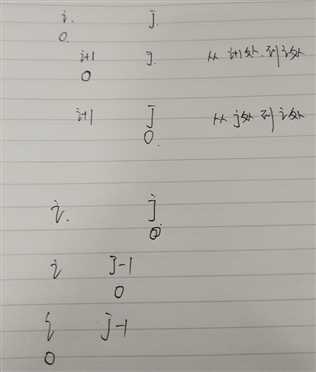 i. j.
0.
i+1 j. 从 i+1处 到 i处
0
i+1 j 从 j处 到 i处
0.
i. j
0
i j-1
0
i j-1
0